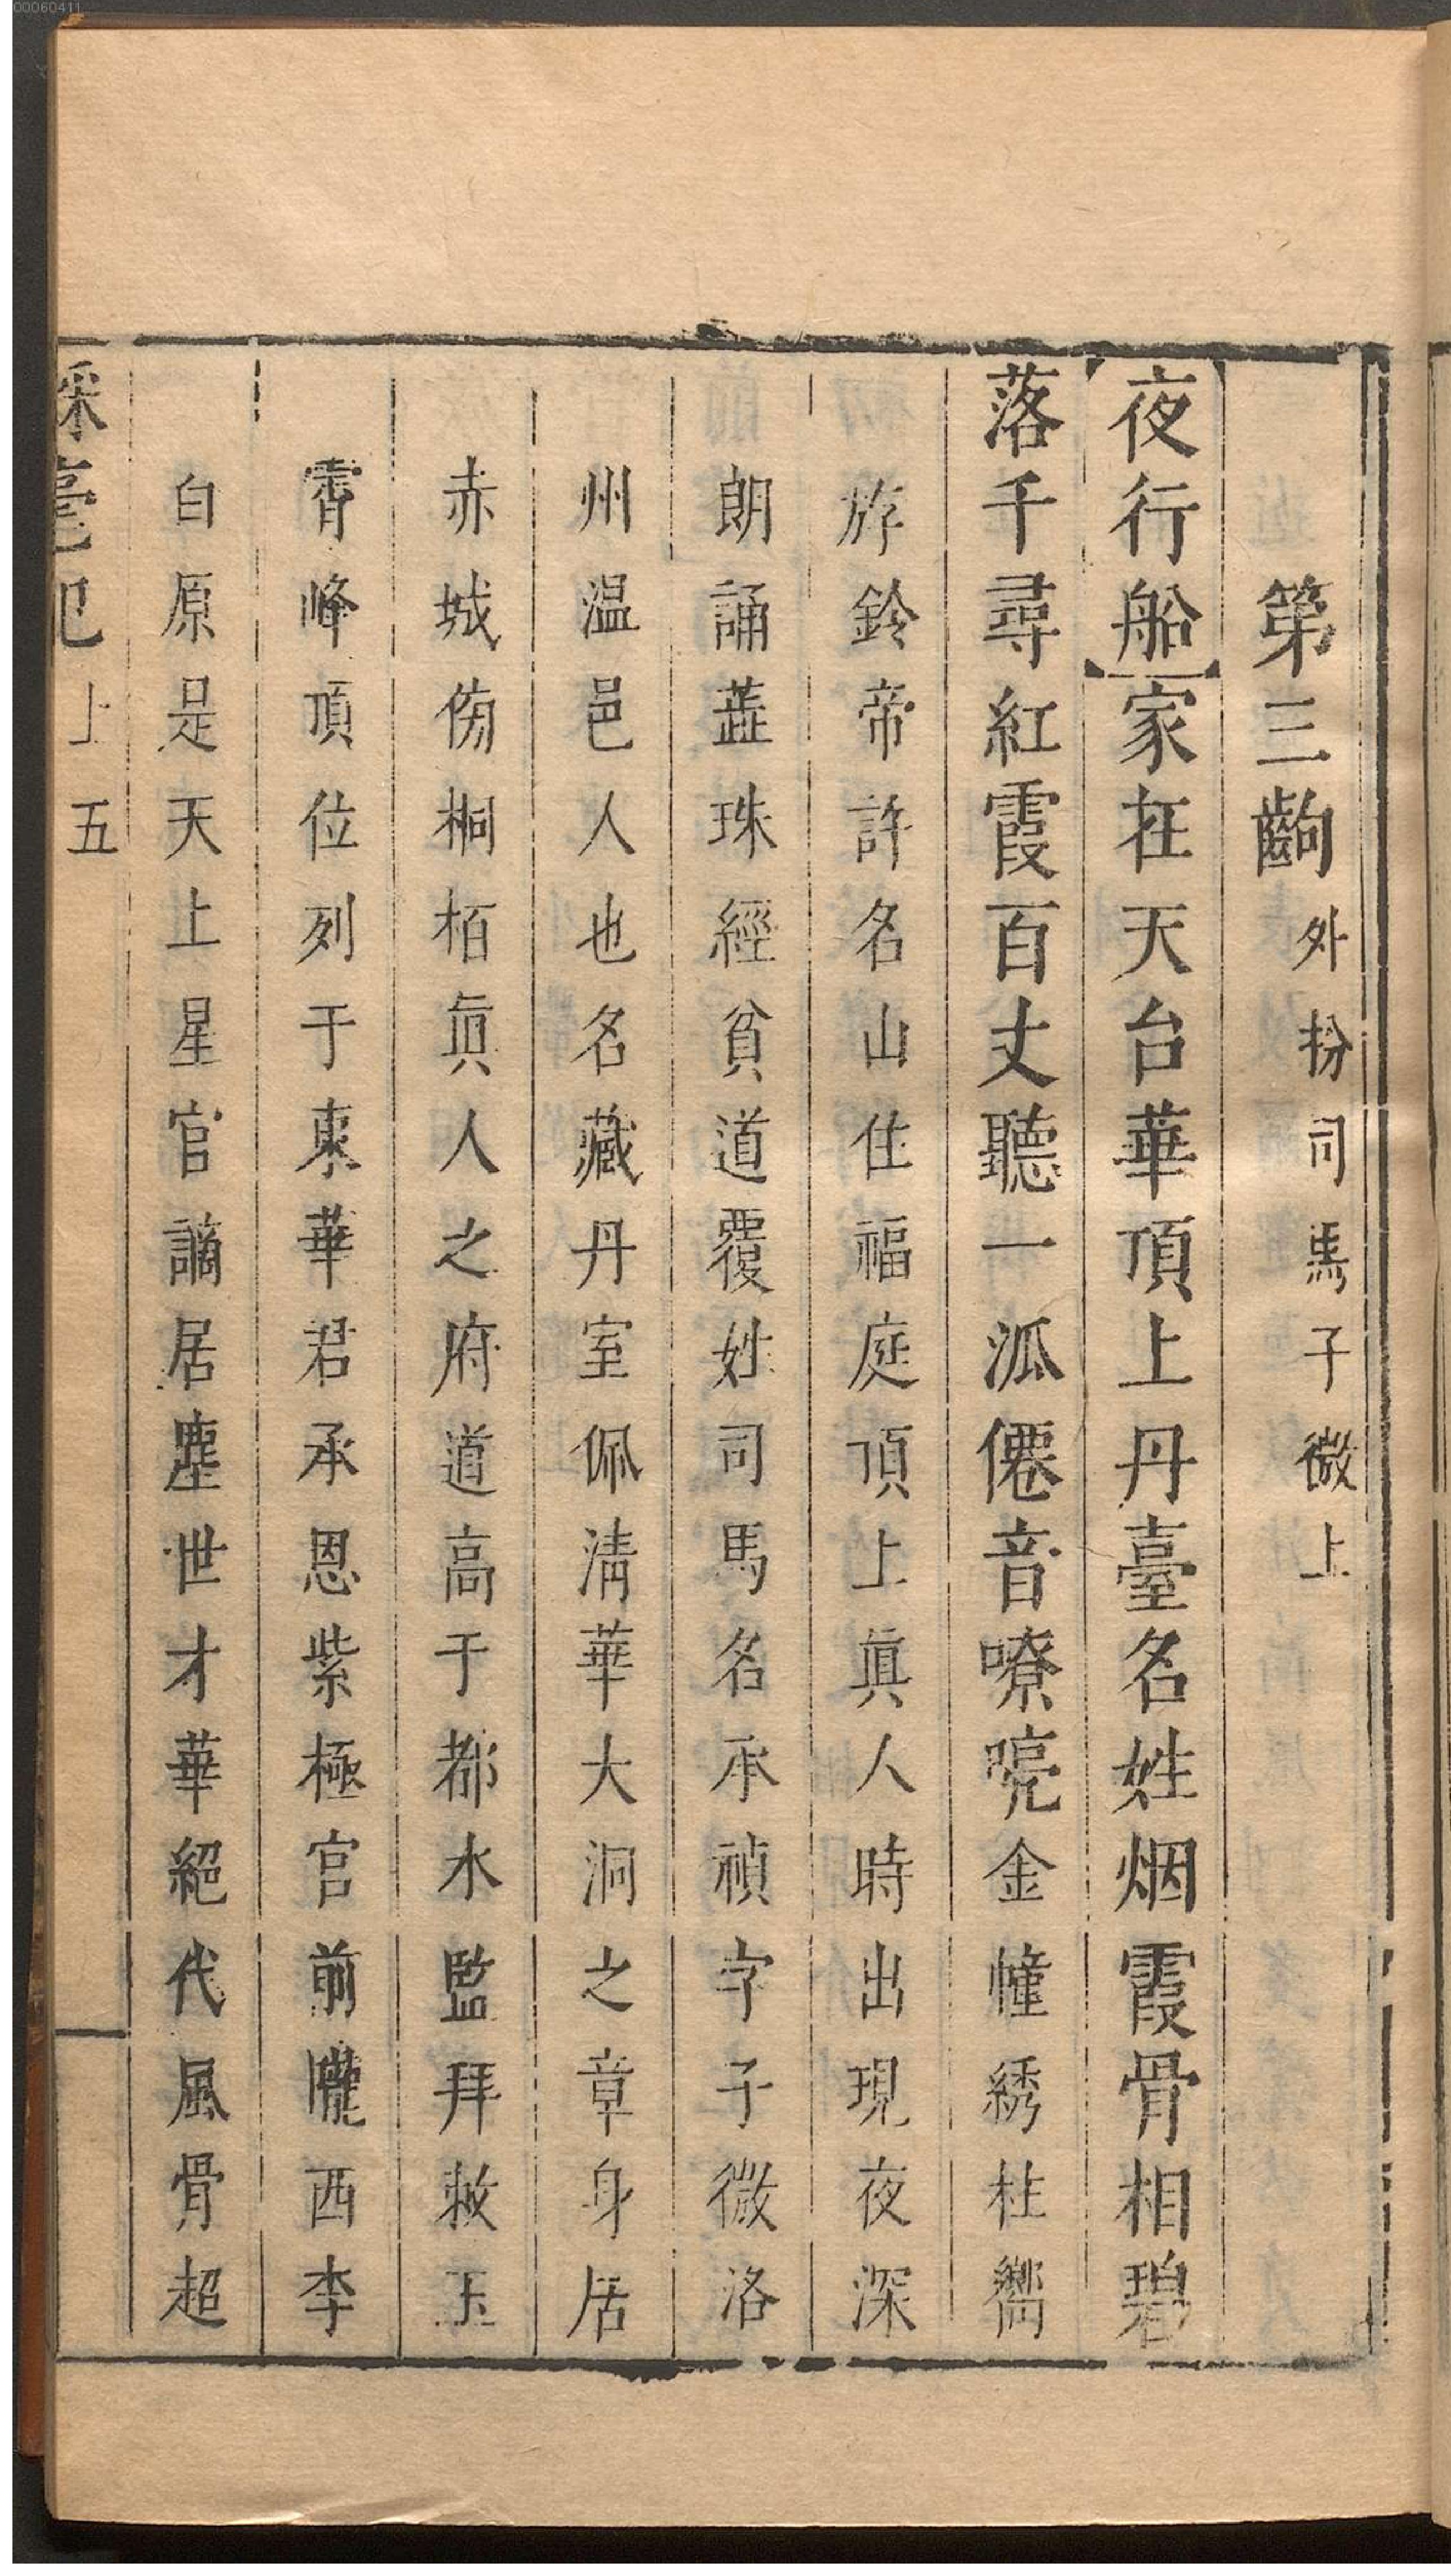 00060411
第三齣外扮司馬子微上
夜行船家在天台華頂上丹臺名姓烟霞骨相碧
落千尋紅霞百丈聽一派僊音嘹喨金幢綉柱嚮
斿鈴帝許名山住福庭頂上眞人時出現夜深
朗誦蕋珠經貧道覆姓司馬名承禎字子微洛
州温邑人也名藏丹室佩淸華大洞之章身居
赤城傍桐栢眞人之府道高于都水監拜敕玉
霄峰頂位列于東華君承恩紫極宫前隴西李
白原是天上星官謫居塵世才華絕代風骨超
綵毫記 上 五